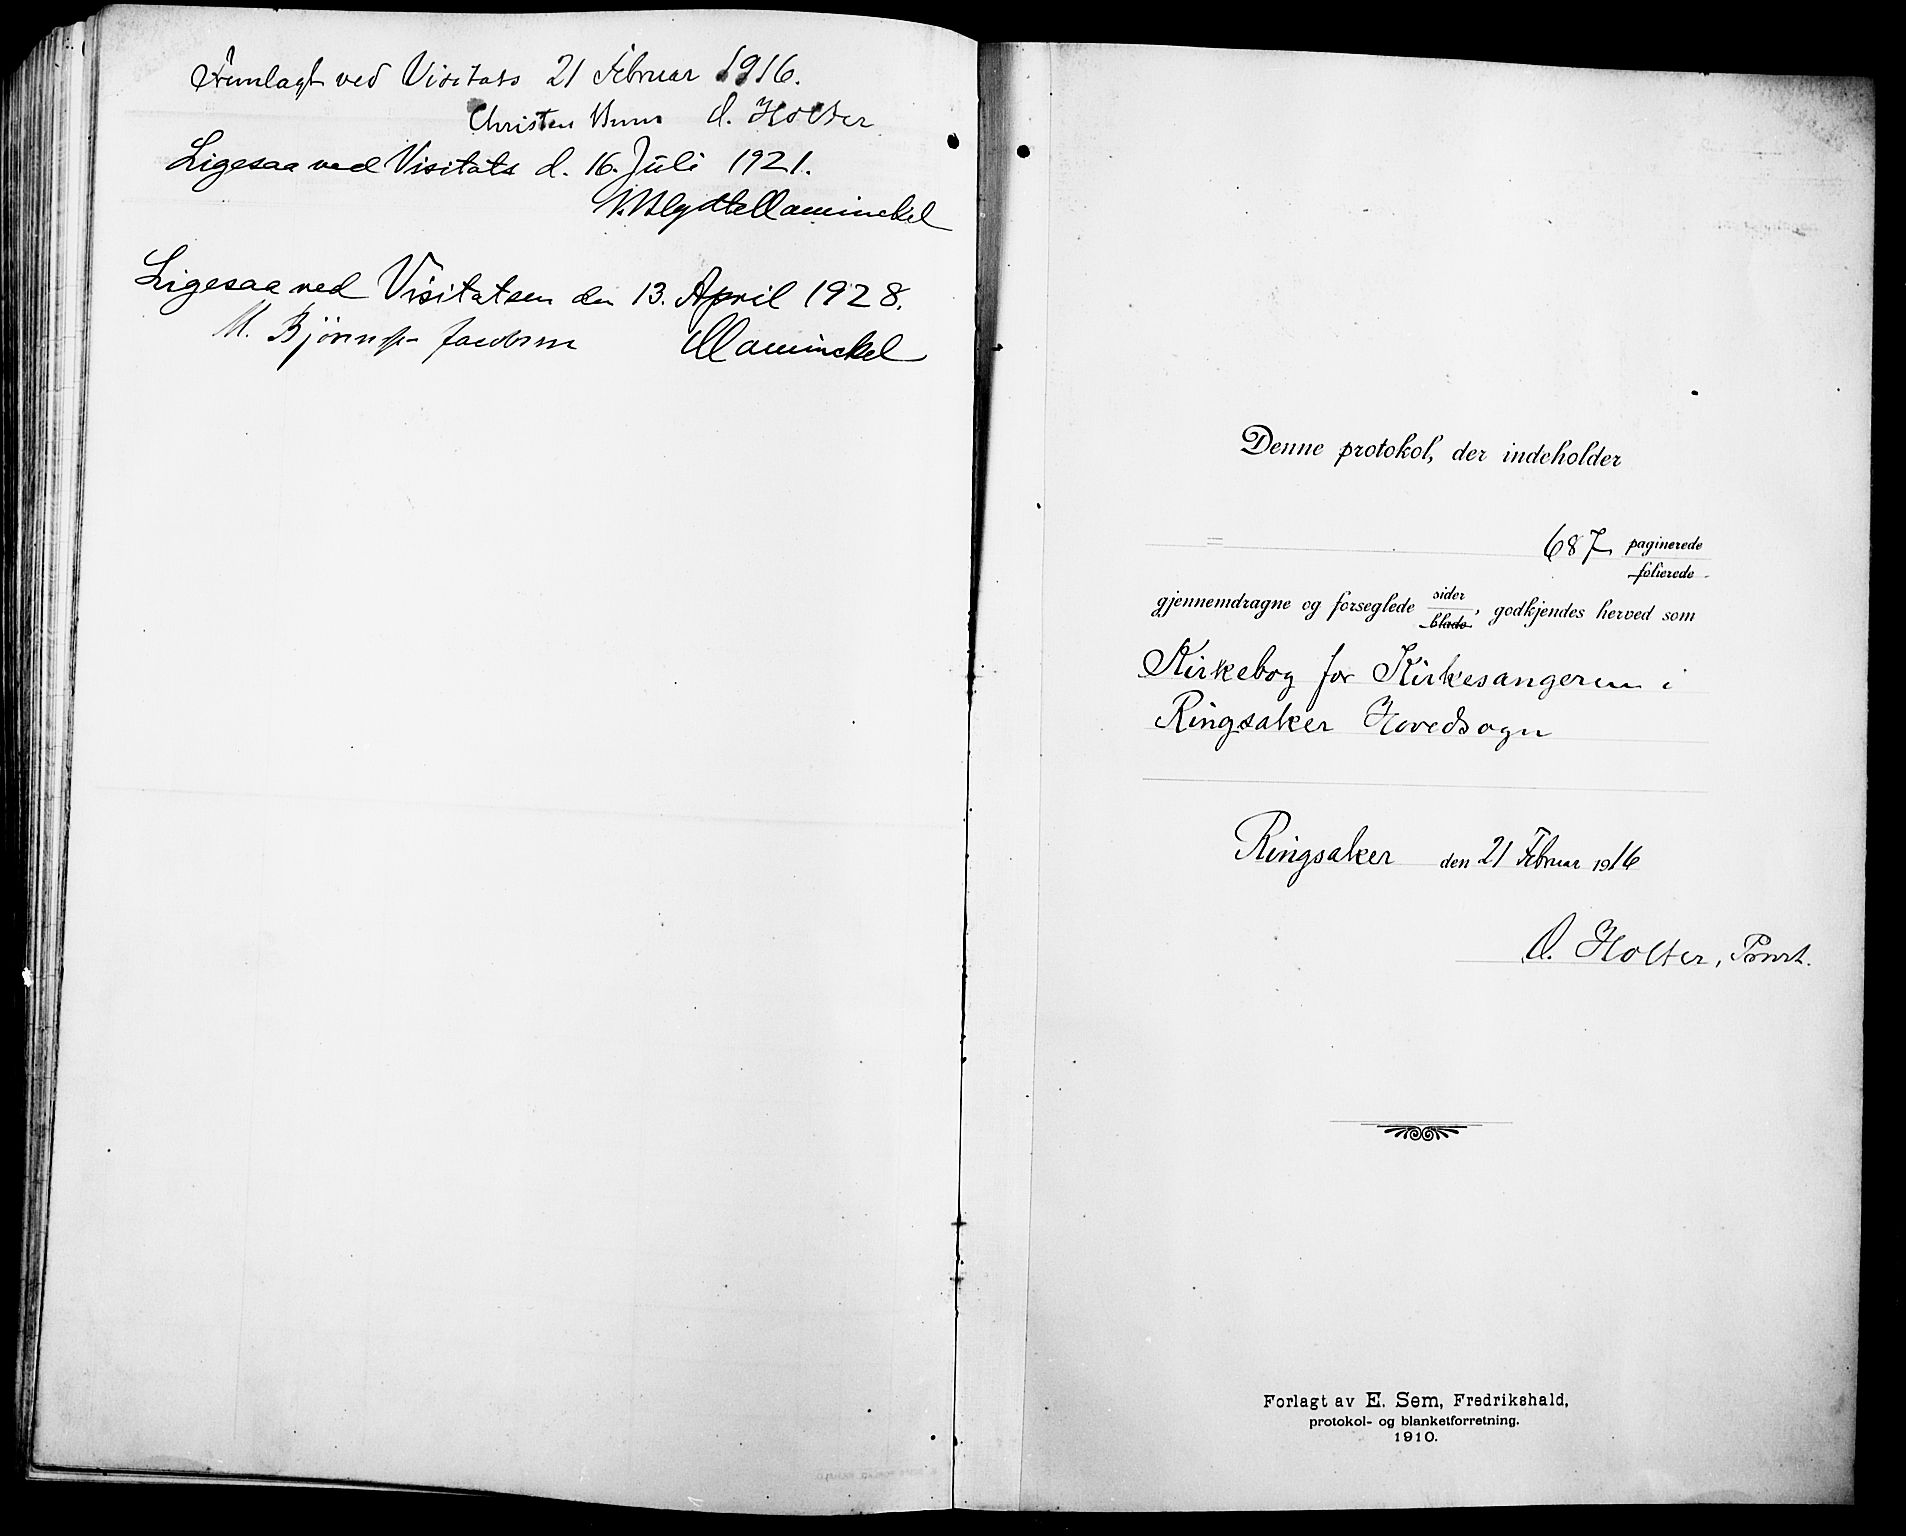 Fremlagt ved Visitats 21 Februar 1916.
Christen Brun O. Holter
Ligesaa ved Visitats d. 16. Juli 1921.
Ligesaa ved Visitatsen den 13. April 1928.
M. Bjønness-Jacobsen
Denne protokol, der indeholder
= 687 paginerede
folierede
gjennemdragne og forseglede sider, godkjendes herved som
blade
Kirkebog for Kirkesangeren i
Ringsaker Hovedsogn
Ringsaker den 21 Februar 1916
O. Holter, Provst.
Forlagt av E. Sem, Fredrikshald,
protokol- og blanketforretning.
1910.